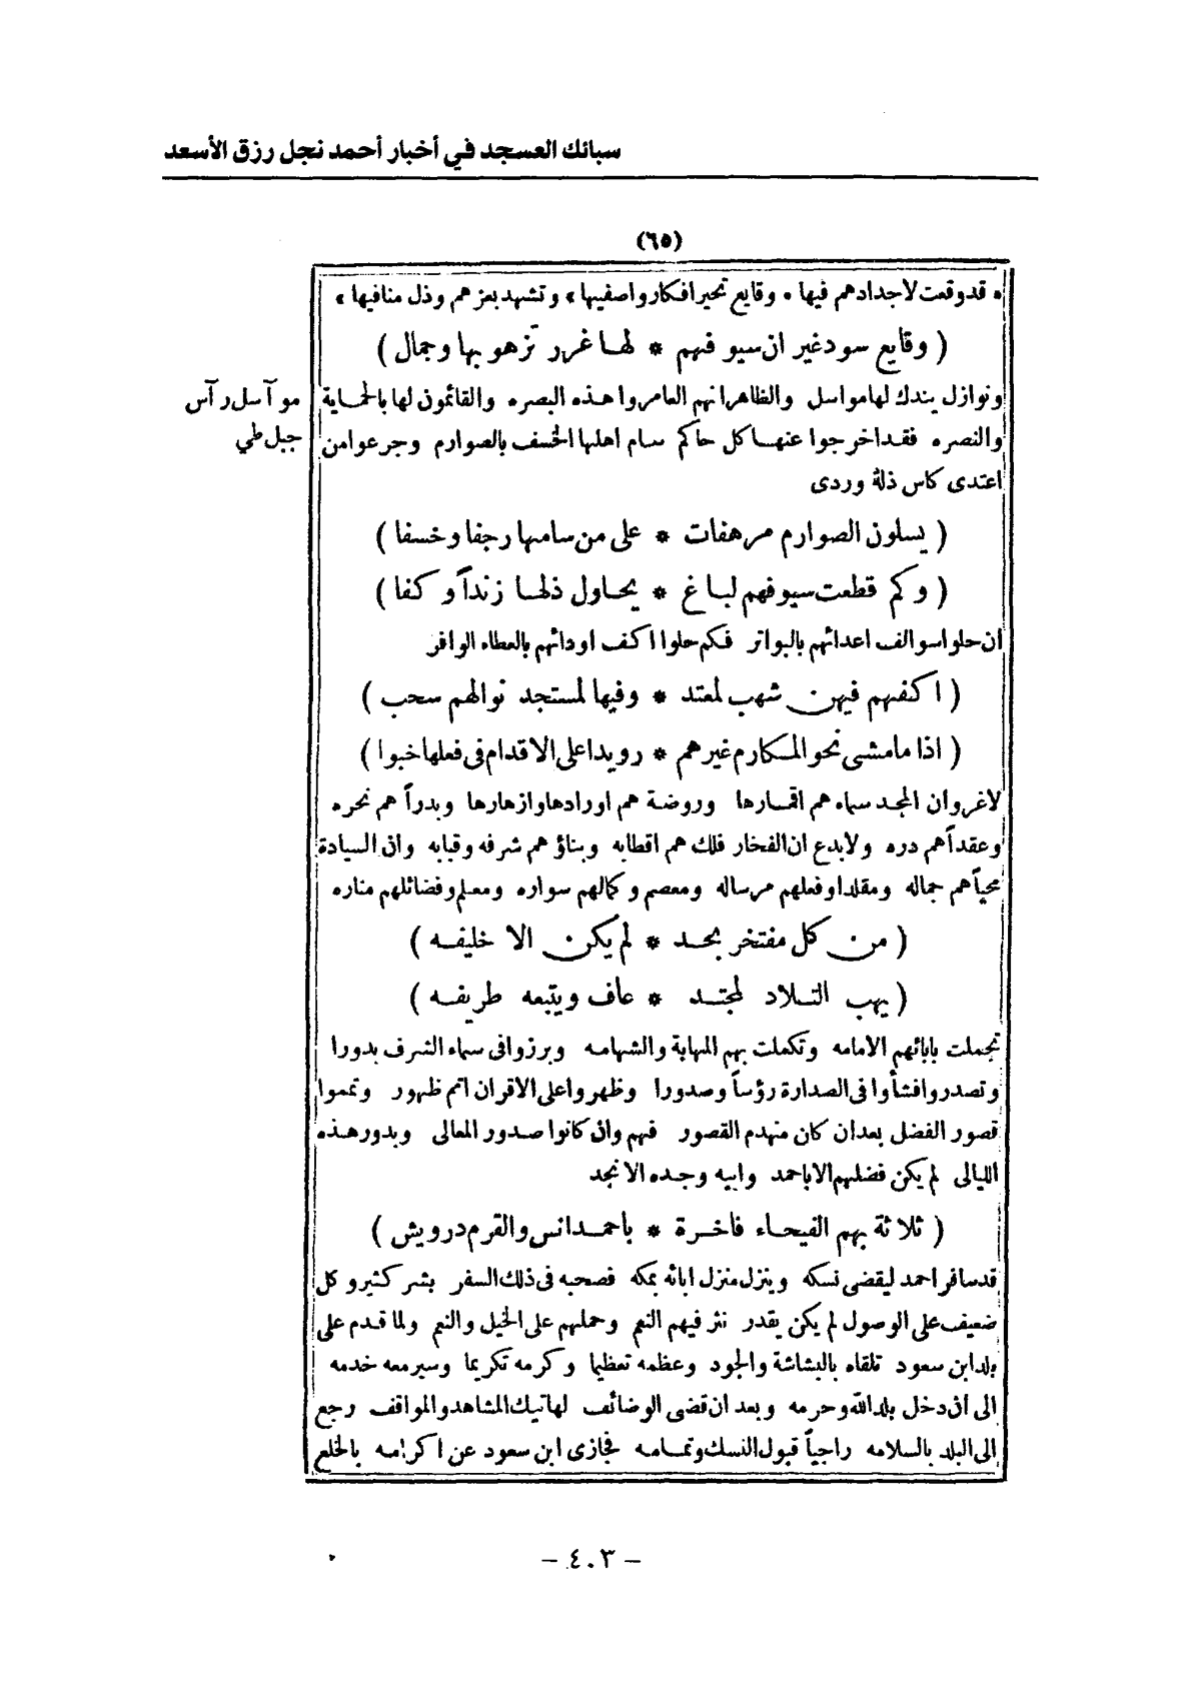 سبائك العسجد في أخبار أحمد نجل رزق الأسعد
(٦٥)
* قد وقعت لاجدادهم فيها * وقايع تحير افكار واصفيها * وتشهد بعزهم وذل منافيها *
( وقايع سود غير ان سيوفهم * لهـا غرر تزهو بها وجمال )
ونوازل يندك لها مواسل والظاهر انهم العامروا هـذه البصره والقائمون لها بالحماية
موآسل رآس
والنصره فقد اخرجوا عنهـا كل حاكم سام اهلها الخسف بالصوارم وجرعوا من
جبل طي
اعتدى كاس ذلة وردى
( يسلون الصوارم مرهفات * على من سامها رجفا وخسفا )
( وكم قطعت سيوفهم لبـاغ * يحـاول ذلهـا زنداً وكفا )
ان حلوا سوالف اعدائهم بالبواتر فكم حلوا اكف اودائهم بالعطاء الوافر
( اكفهم فيهن شهب لمعتد * وفيها لمستجد نوالهم سحب )
( اذا ما مشى نحو المكارم غيرهم * رويدا على الاقدام فى فعلها خبوا )
لا غرو ان المجد سماء هم اقمارها وروضة هم اورادها وازهارها وبدراً هم نحره
وعقداً هم دره ولا بدع ان الفخار فلك هم اقطابه وبناؤ هم شرفه وقبابه وان السيادة
محياً هم جماله ومقلدا وفعلهم مرساله ومعصم وكمالهم سواره ومعلم وفضائلهم مناره
( من كل مفتخر بجـد * لم يكن الا خليفـه )
( يهب التـلاد لمجتـد * عاف ويتبعه طريفـه )
تجملت بابائهم الامامه وتكملت بهم المهابة والشهامـه وبرزوا فى سماء الشرف بدورا
وتصدروا فنشأوا فى الصدارة رؤساً وصدورا وظهروا على الاقران اتم ظهور وتمموا
قصور الفضل بعد ان كان منهدم القصور فهم وان كانوا صدور المعالى وبدور هـذه
الليالى لم يكن فضلهم الا باحمد وابيه وجـده الانجد
( ثلاثة بهم الفيحـاء فاخـرة * باحمـد انس والقرم درويش )
قد سافر احمد ليقضى نسكه وينزل منزل ابائه بمكه فصحبه فى ذلك السفر بشر كثير وكل
ضعيف على الوصول لم يكن يقدر نثر فيهم النعم وحملهم على الخيل والنعم ولما قدم على
بلد ابن سعود تلقاه بالبشاشة والجود وعظمه تعظيما وكرمه تكريما وسير معه خدمه
الى ان دخل بلد الله وحرمه وبعد ان قضى الوضائف لهاتيك المشاهد والمواقف رجع
الى البلد بالسلامه راجياً قبول النسك وتمـامـه فجازى ابن سعود عن اكرامه بالخلع
- ٤٠٣ -